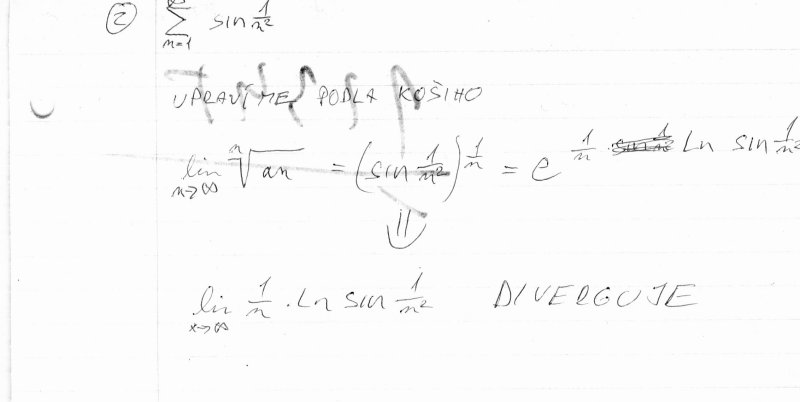 ② ∞ ∑ n=1 sin 1/n²
UPRAVÍME PODLA KOŠIHO
lim n→∞ ⁿ√an = (sin 1/n²)^1/n = e^1/n · Ln sin 1/n²
⇓
lim x→∞ 1/n · Ln sin 1/n² DIVERGUJE